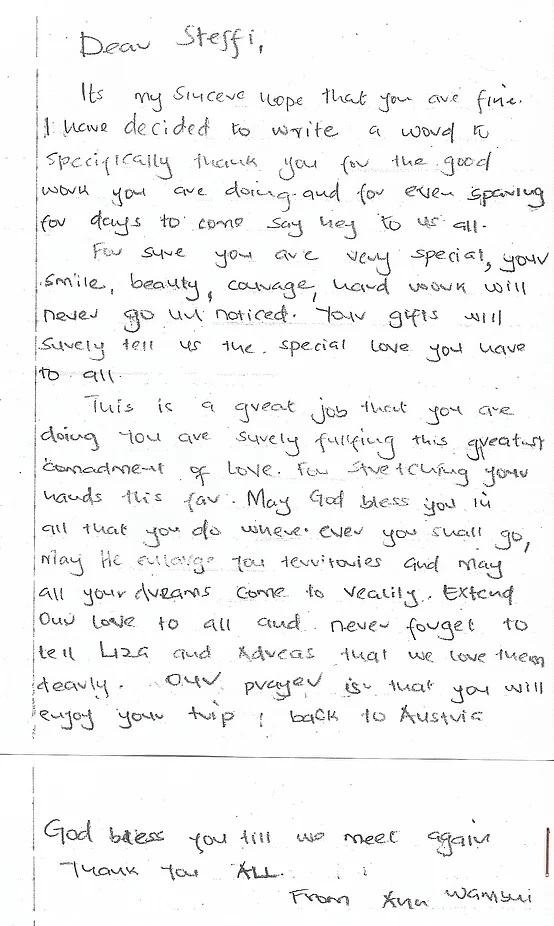 Dear Steffi,
Its my sincere hope that you are fine.
I have decided to write a word to
specifically thank you for the good
work you are doing and for even sparing
for days to come say hey to us all.
For sure you are very special, your
smile, beauty, courage, hard work will
never go un noticed. Your gifts will
surely tell us the special love you have
to all.
This is a great job that you are
doing you are surely fulfling this greatest
comadment of love. For stretching your
hands this far. May God bless you in
all that you do where ever you shall go,
may He enlarge you territories and may
all your dreams come to reality. Extend
our love to all and never forget to
tell Liza and Adreas that we love them
dearly. Our prayer is that you will
enjoy your trip back to Austria
God bless you till we meet again
Thank you ALL.
From Ann Wambui